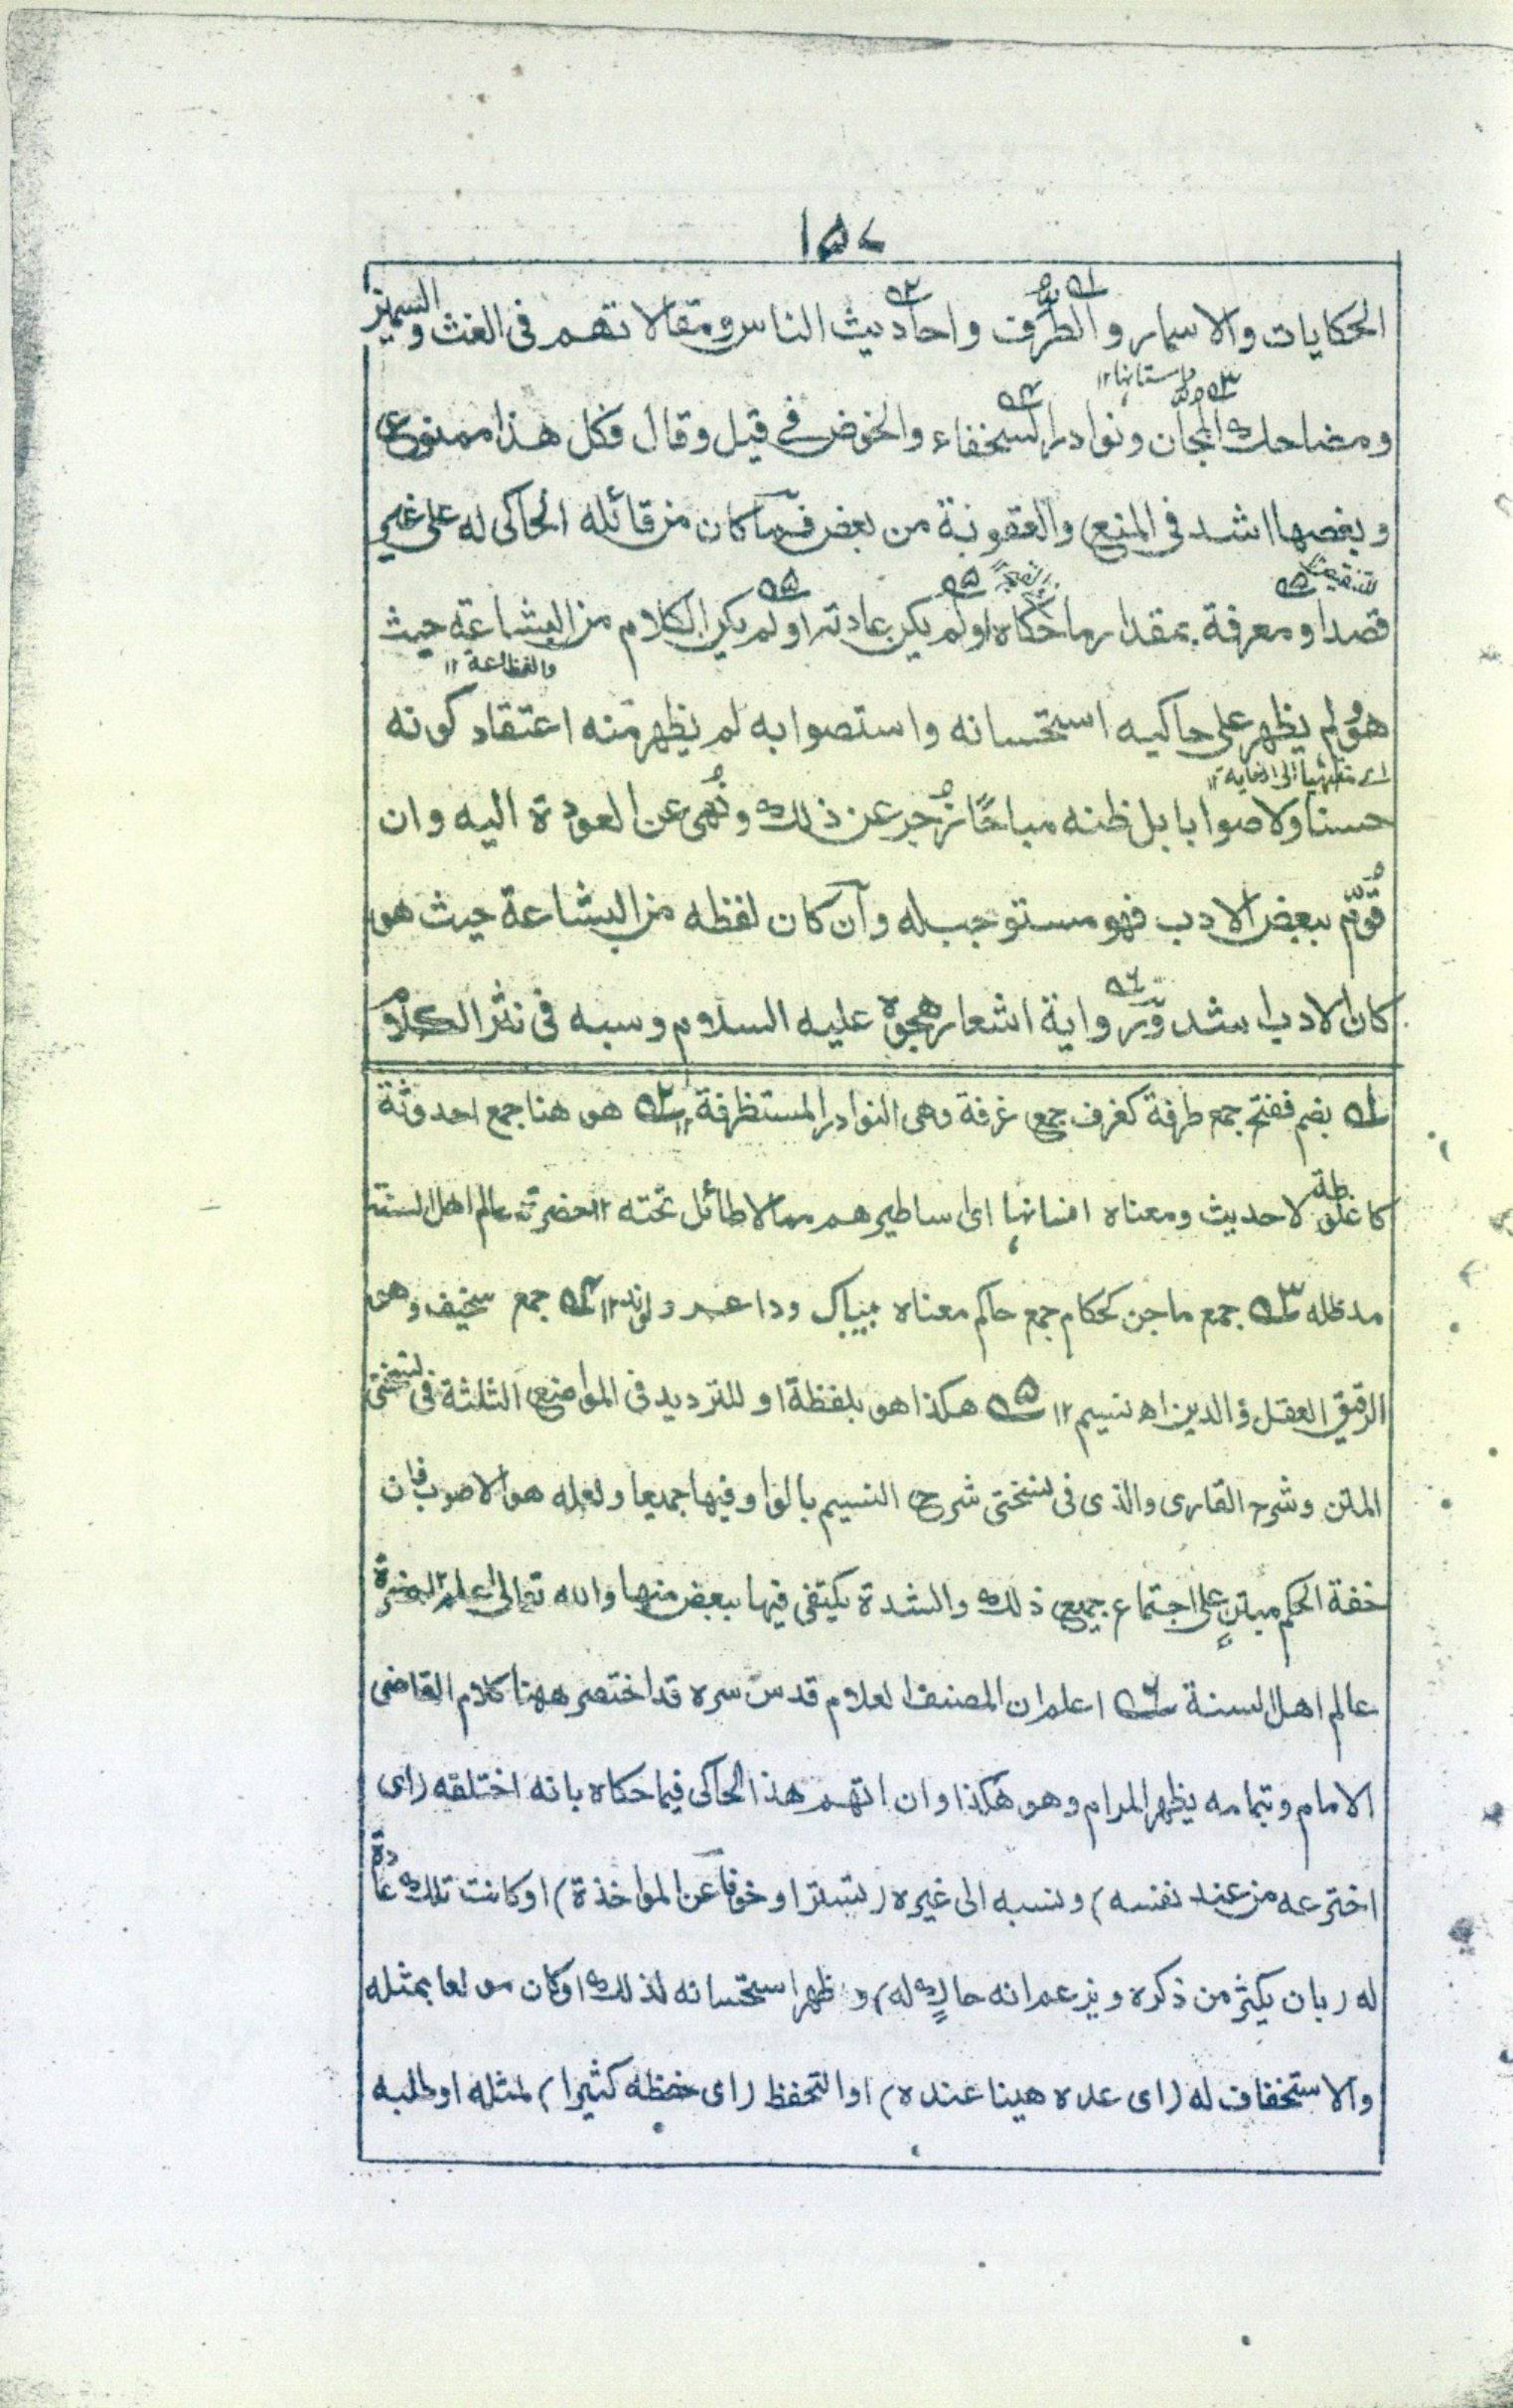 ١٥٧
الحكايات والاسمار والطُرَف واحاديث الناس ومقالاتهم فى الغث والسمين
داستانها ١٢
ومضاحك المجان ونوادر السخفاء والخوض فى قيل وقال فكل هذا ممنوع
وبعضها اشد فى المنع والعقوبة من بعض فما كان من قائله الحاكى له على غير
قصد او معرفة بمقدار ما حكاه او لم يكن عادته او لم يكن الكلام من البشاعة حيث
والفظاعة ١٢
هو ولم يظهر على حاكيه استحسانه واستصوابه لم يظهر منه اعتقاد كونه
حسنا ولا صوابا بل ظنه مباحًا زُجر عن ذلك ونُهى عن العودة اليه وان
قُوّم ببعض الادب فهو مستوجب له وان كان لفظه من البشاعة حيث هو
كان الادب اشد ورواية اشعار هجوه عليه السلام وسبه فى نثر الكلام
١ه بضم ففتح جمع طرفة كغرف جمع غرفة وهى النوادر المستظرفة ١٢ ٢ه هو هنا جمع احدوثة
كاغلوطة لا حديث ومعناه افسانها اى اساطيرهم مما لا طائل تحته ١٢ حضرة عالم اهل السنة
مدظله ٣ه جمع ماجن كحكام جمع حاكم معناه بيباك و ١٢ ٤ه جمع سخيف وهو
الرقيق العقل والدين اه نسيم ١٢ ٥ه هكذا هو بلفظة او للترديد فى المواضع الثلثة فى نسختى
المتن وشرح القارى والذى فى نسختى شرح النسيم بالواو فيها جميعا ولعله هو الاصوب فان
خفة الحكم مبتنٍ على اجتماع جميع ذلك والشدة يكتفى فيها ببعض منها والله تعالى اعلم ١٢ حضرة
عالم اهل السنة ٦ه اعلم ان المصنف العلام قدس سره قد اختصر ههنا كلام القاضى
الامام وبتمامه يظهر المرام وهو هكذا وان اتهم هذا الحاكى فيما حكاه بانه اختلقه (اى
اخترعه من عند نفسه) ونسبه الى غيره (تسترا وخوفا عن المواخذة) او كانت تلك عادة
له (بان يكثر من ذكره ويزعم انه حاكٍ له) وظهر استحسانه لذلك او كان مولعا بمثله
والاستخفاف له (اى عده هينا عنده) او التحفظ (اى حفظه كثيرا) لمثله او طلبه